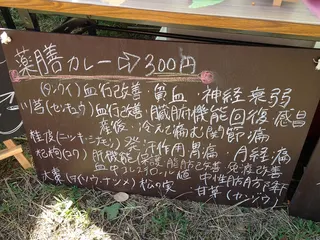 薬膳カレー⇨300円
(タンクイ)血行改善・貧血・神経衰弱
川芎(センキュウ)血行改善・臓腑機能回復・感冒
産後・冷えて痛む関節痛
桂皮(ニッキ・シナモン)発汗作用・胃痛・月経痛
枸杞(クコ)肝機能保護・脂肪改善・免疫改善
血中コレステロール値・中性脂肪下降
大棗(タイソウ・ナツメ)松の実・甘草(カンゾウ)